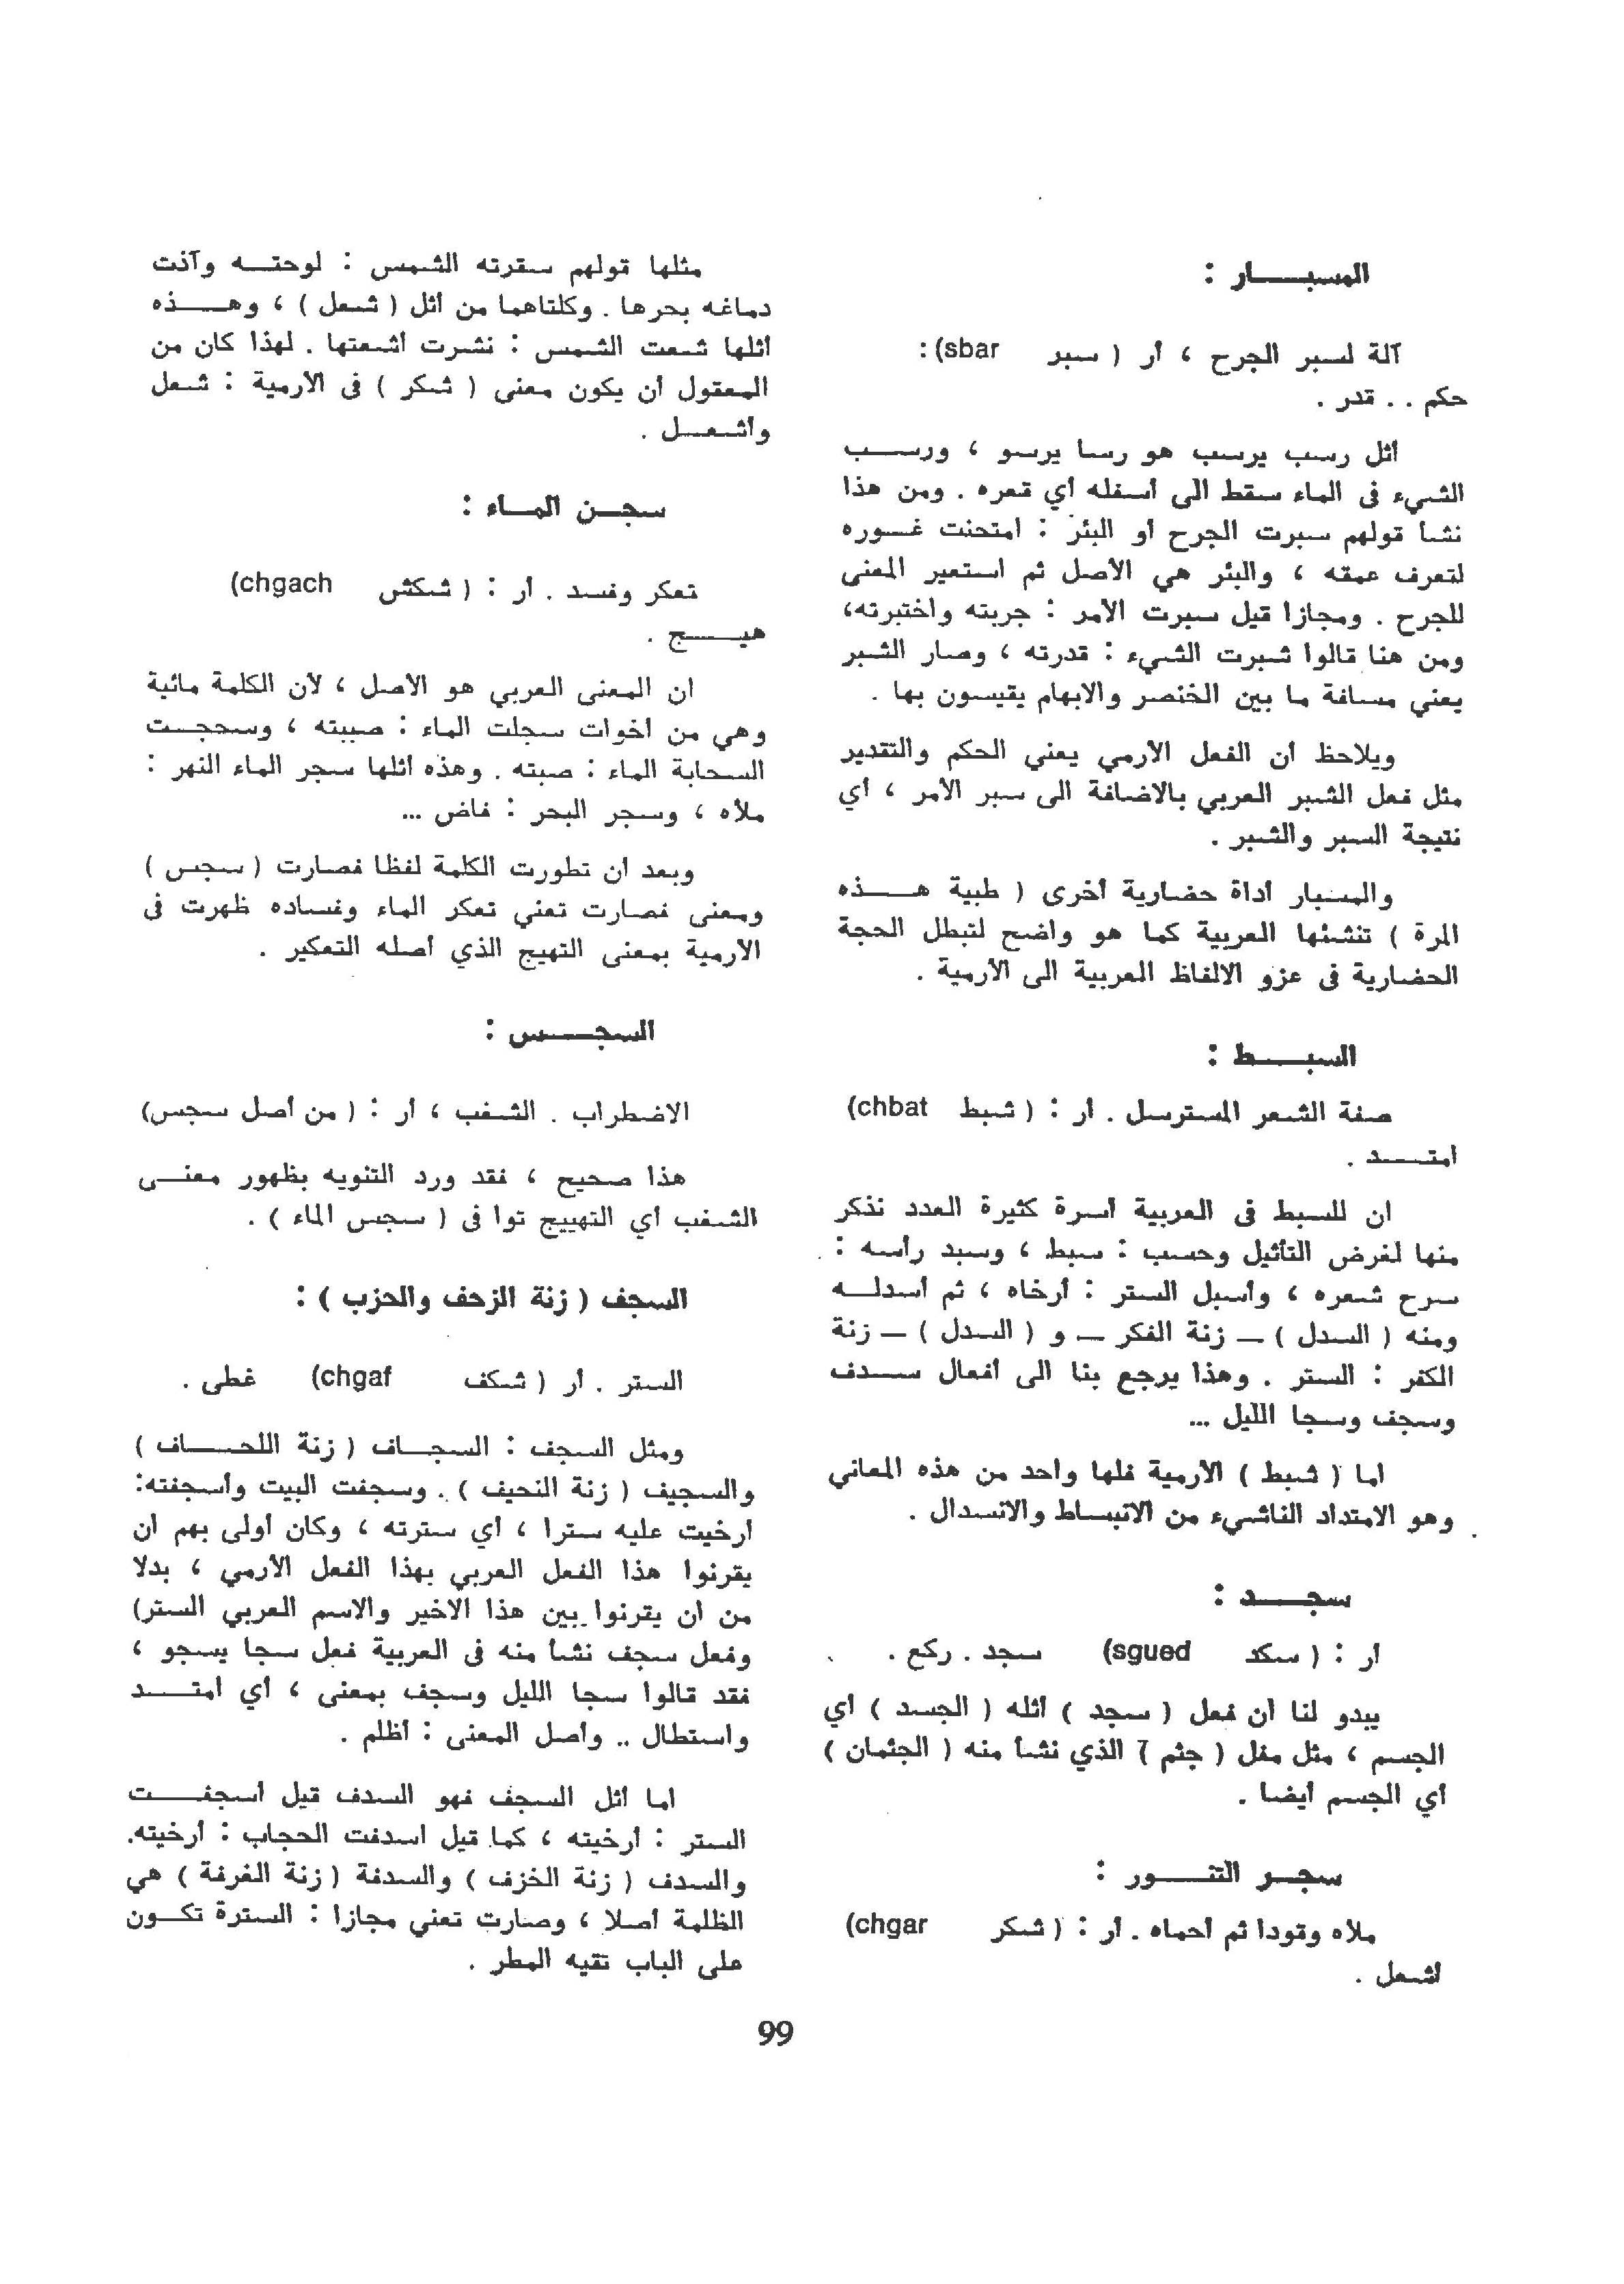 المسبـــــار :
آلة لسبر الجرح ، أر ( سبر sbar) :
حكم . . قدر .
أثل رسب يرسب هو رسا يرسو ، ورســـب
الشيء فى الماء سقط الى أسفله أي قعره . ومن هذا
نشأ قولهم سبرت الجرح أو البئر : امتحنت غـــوره
لتعرف عمقه ، والبئر هي الأصل ثم استعير المعنى
للجرح . ومجازا قيل سبرت الأمر : جربته واختبرته،
ومن هنا قالوا شبرت الشيء : قدرته ، وصار الشبر
يعني مسافة ما بين الخنصر والابهام يقيسون بها .
ويلاحظ أن الفعل الأرمي يعني الحكم والتقدير
مثل فعل الشبر العربي بالاضافة الى سبر الأمر ، أي
نتيجة السبر والشبر .
والمسبار أداة حضارية أخرى ( طبية هـــــذه
المرة ) تنشئها العربية كما هو واضح لتبطل الحجة
الحضارية فى عزو الالفاظ العربية الى الأرمية .
السبـــــط :
صفة الشعر المسترسل . أر : ( شبط chbat)
امتـــــد .
ان للسبط فى العربية أسرة كثيرة العدد نذكر
منها لغرض التأثيل وحسب : سبط ، وسبد رأسه :
سرح شعره ، وأسبل الستر : أرخاه ، ثم أسدلـــه
ومنه ( السدل ) ــ زنة الفكر ــ و ( السدل ) ــ زنة
الكفر : الستر . وهذا يرجع بنا الى أفعال ســـدف
وسجف وسجا الليل ...
اما ( شبط ) الأرمية فلها واحد من هذه المعاني
وهو الامتداد الناشيء من الانبساط والانسدال .
سجـــــد :
أر : ( سكد sgued) سجد . ركع .
يبدو لنا أن فعل ( سجد ) أثله ( الجسد ) أي
الجسم ، مثل مغل ( جثم ) الذي نشأ منه ( الجثمان )
أي الجسم أيضا .
سجـر التنــــور :
ملأه وقودا ثم أحماه . أر : ( شكر chgar)
أشعل .
مثلها قولهم سقرته الشمس : لوحتـــه وآذت
دماغه بحرها . وكلتاهما من أثل ( شعل ) ، وهـــــذه
أثلها شعت الشمس : نشرت أشعتها . لهذا كان من
المعتول أن يكون معنى ( شكر ) فى الأرمية : شعل
وأشعـــل .
سجــن المــاء :
تعكر وفسد . أر : ( شكش chgach)
هيـــــج .
ان المعنى العربي هو الأصل ، لأن الكلمة مائية
وهي من أخوات سجلت الماء : صببته ، وسحجــت
السحابة الماء : صبته . وهذه أثلها سجر الماء النهر :
ملأه ، وسجر البحر : فاض ...
وبعد ان تطورت الكلمة لفظا فصارت ( سجس )
ومعنى فصارت تعني تعكر الماء وفساده ظهرت فى
الأرمية بمعنى التهيج الذي أصله التعكير .
السجـــــس :
الاضطراب . الشغب ، أر : ( من أصل سجس)
هذا صحيح ، فقد ورد التنويه بظهور معنـــى
الشغب أي التهييج توا فى ( سجس الماء ) .
السجف ( زنة الزحف والحزب ) :
الستر . أر ( شكف chgaf) غطى .
ومثل السجف : السجــاف ( زنة اللحـــاف )
والسجيف ( زنة النحيف ) . وسجفت البيت وأسجفته:
أرخيت عليه سترا ، أي سترته ، وكان أولى بهم ان
يقرنوا هذا الفعل العربي بهذا الفعل الأرمي ، بدلا
من ان يقرنوا بين هذا الاخير والاسم العربي الستر)
وفعل سجف نشأ منه فى العربية فعل سجا يسجو ،
فقد قالوا سجا الليل وسجف بمعنى ، أي امتـــــد
واستطال .. وأصل المعنى : أظلم .
اما أثل السجف فهو السدف قيل أسجفــــت
الستر : أرخيته ، كما قيل اسدفت الحجاب : أرخيته.
والسدف ( زنة الخزف ) والسدفة ( زنة الغرفة ) هي
الظلمة أصلا ، وصارت تعني مجازا : السترة تكــون
على الباب تقيه المطر .
99